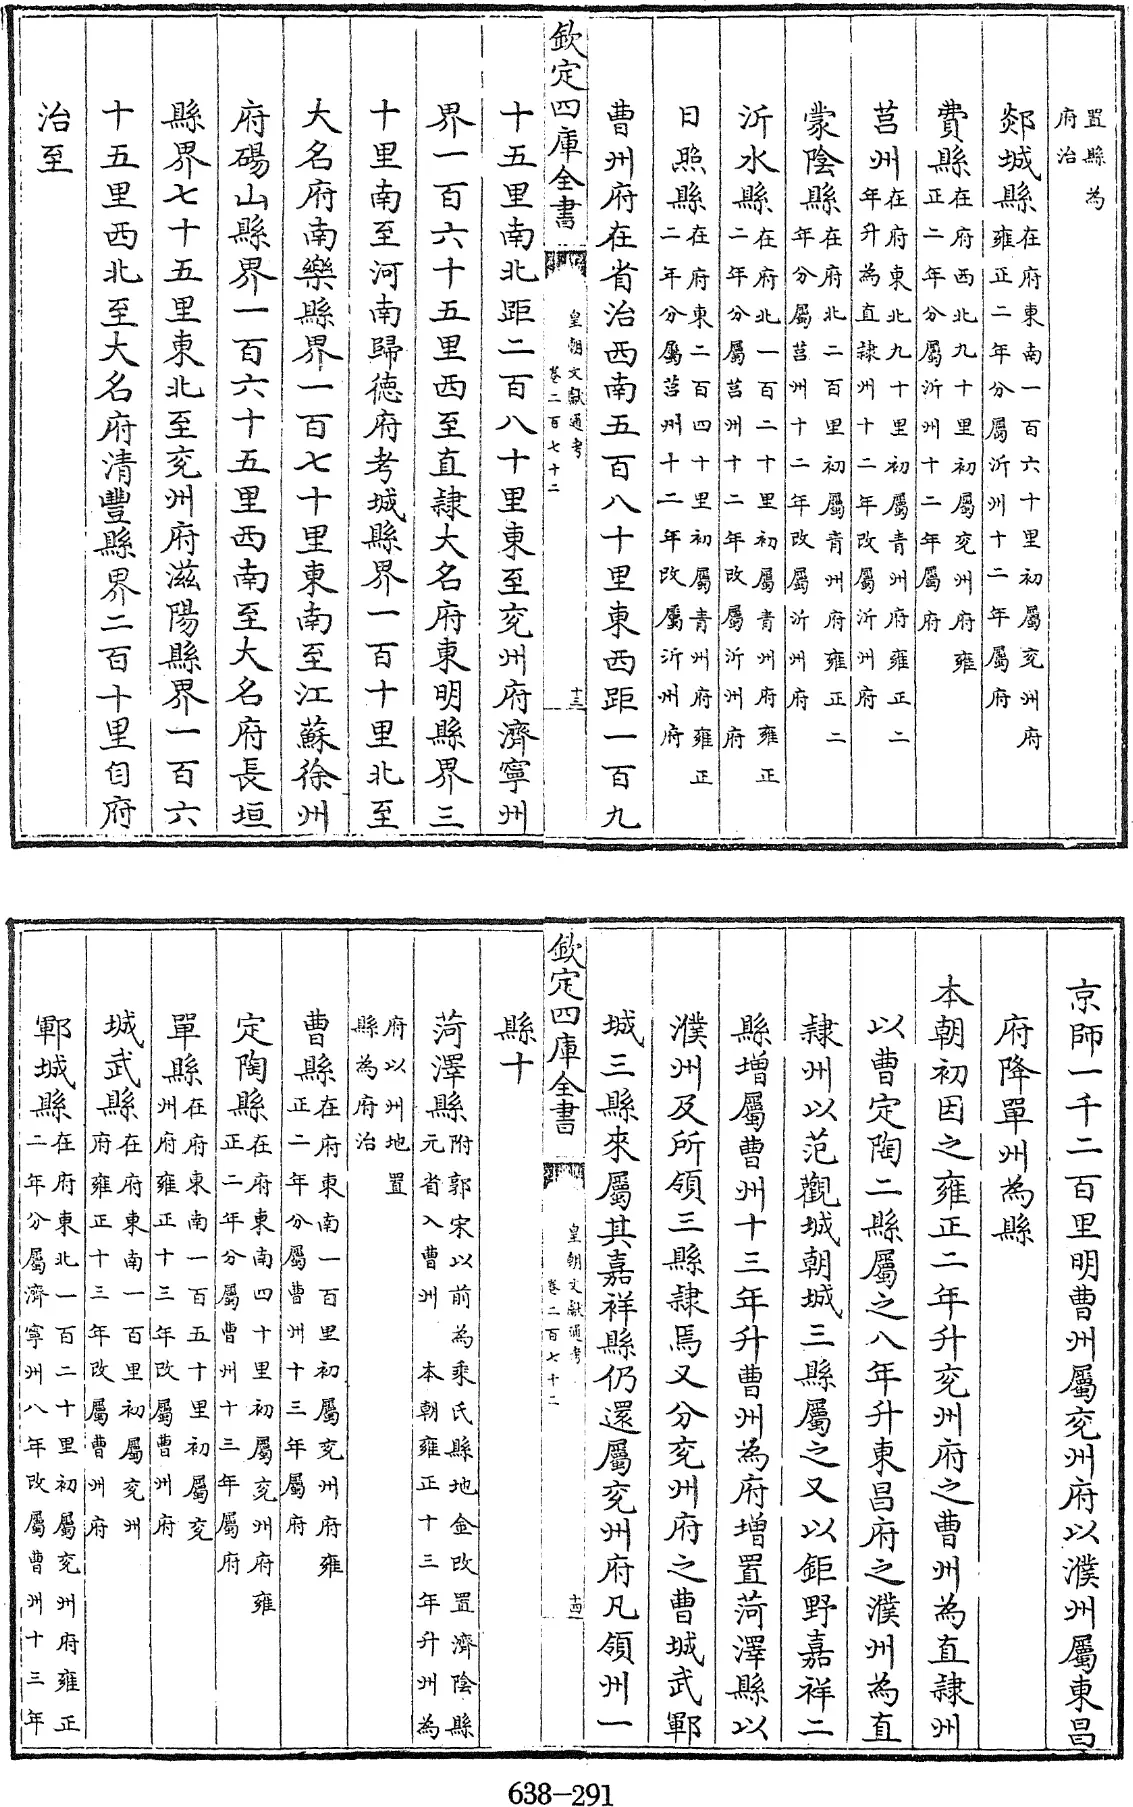 置縣為
府治
郯城縣在府東南一百六十里初屬兗州府
雍正二年分屬沂州十二年屬府
費縣在府西北九十里初屬兗州府雍
正二年分屬沂州十二年屬府
莒州在府東北九十里初屬青州府雍正二
年升為直隸州十二年改屬沂州府
蒙陰縣在府北二百里初屬青州府雍正二
年分屬莒州十二年改屬沂州府
沂水縣在府北一百二十里初屬青州府雍正
二年分屬莒州十二年改屬沂州府
日照縣在府東二百四十里初屬青州府雍正
二年分屬莒州十二年改屬沂州府
曹州府在省治西南五百八十里東西距一百九
欽定四庫全書
皇朝文獻通考
卷二百七十二
十三
十五里南北距二百八十里東至兗州府濟寧州
界一百六十五里西至直隸大名府東明縣界三
十里南至河南歸德府考城縣界一百十里北至
大名府南樂縣界一百七十里東南至江蘇徐州
府碭山縣界一百六十五里西南至大名府長垣
縣界七十五里東北至兗州府滋陽縣界一百六
十五里西北至大名府清豐縣界二百十里自府
治至
京師一千二百里明曹州屬兗州府以濮州屬東昌
府降單州為縣
本朝初因之雍正二年升兗州府之曹州為直隸州
以曹定陶二縣屬之八年升東昌府之濮州為直
隸州以范觀城朝城三縣屬之又以鉅野嘉祥二
縣增屬曹州十三年升曹州為府增置菏澤縣以
濮州及所領三縣隸焉又分兗州府之曹城武鄆
城三縣來屬其嘉祥縣仍還屬兗州府凡領州一
欽定四庫全書
皇朝文獻通考
卷二百七十二
十四
縣十
菏澤縣附郭宋以前為乘氏縣地金改置濟陰縣
元省入曹州 本朝雍正十三年升州為
府以州地置
縣為府治
曹縣在府東南一百里初屬兗州府雍
正二年分屬曹州十三年屬府
定陶縣在府東南四十里初屬兗州府雍
正二年分屬曹州十三年屬府
單縣在府東南一百五十里初屬兗
州府雍正十三年改屬曹州府
城武縣在府東南一百里初屬兗州
府雍正十三年改屬曹州府
鄆城縣在府東北一百二十里初屬兗州府雍正
二年分屬濟寧州八年改屬曹州十三年
638-291